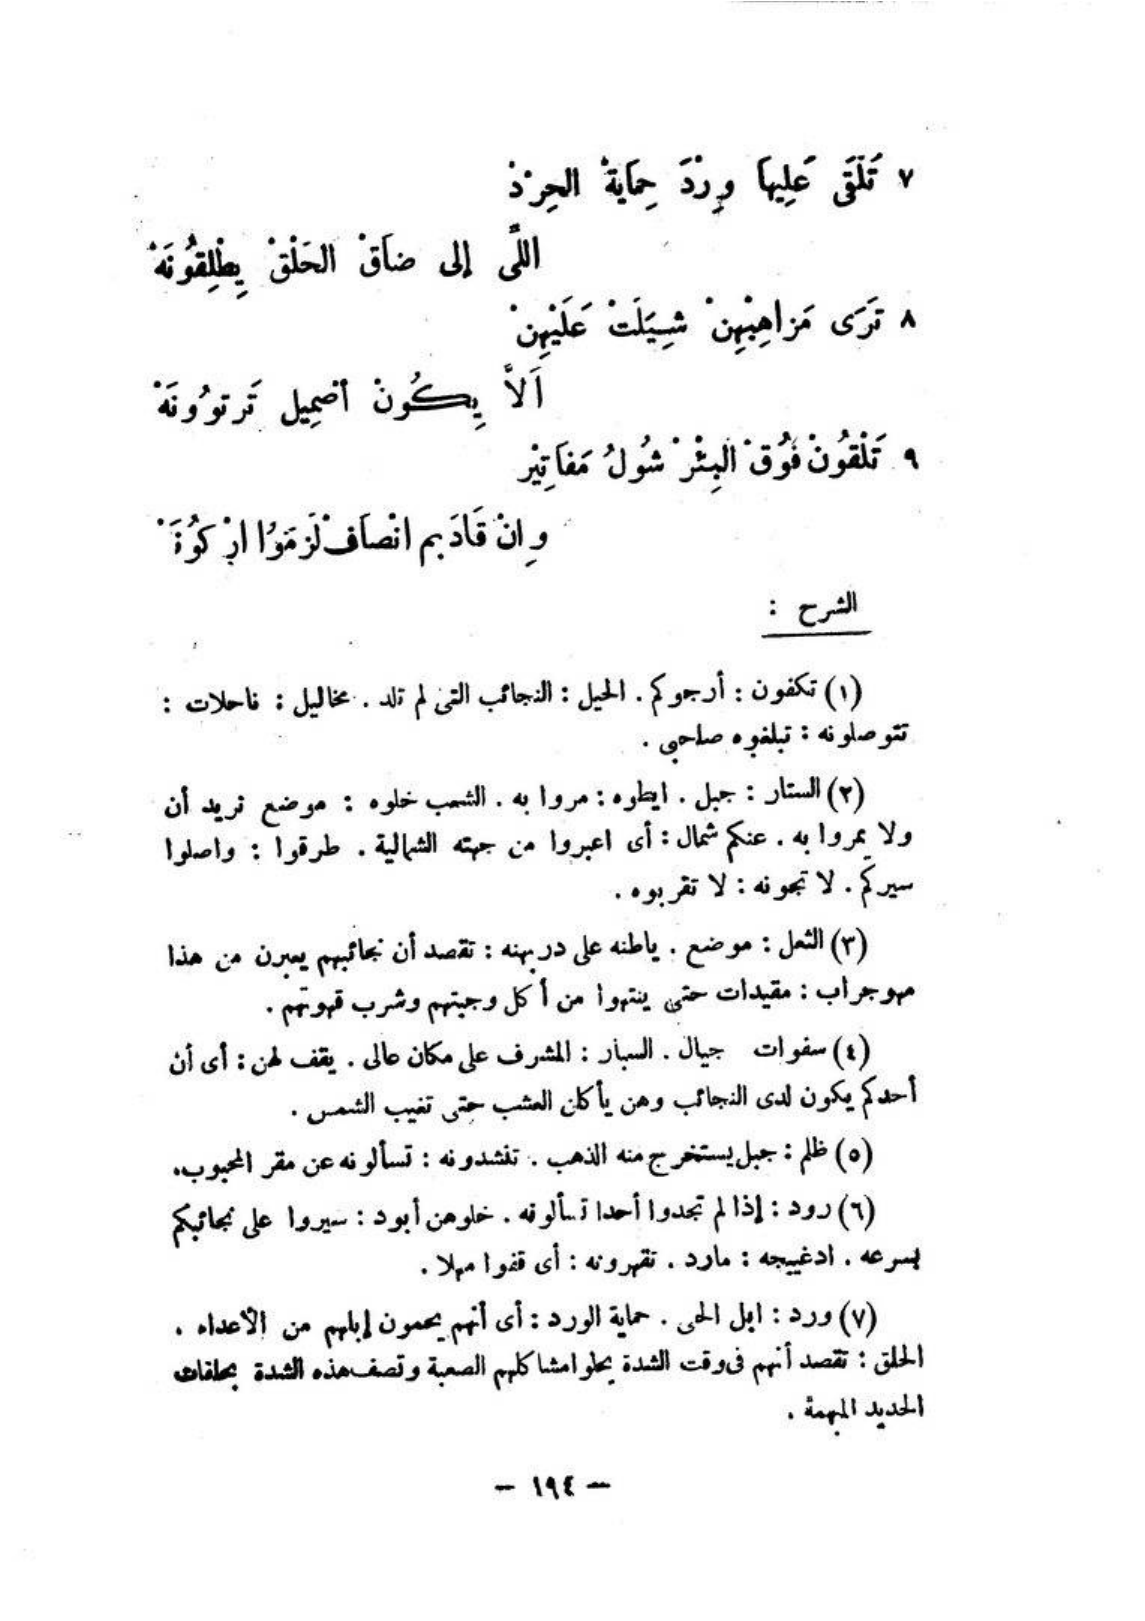 ٧ تَلْقَى عَلِيهَا وِرْدَ حِمَايةْ الحِرْدْ
اللَّى إلى ضاَقْ الحَلْقْ يِطْلِقُونَهْ
٨ تَرَى مَزاهِبْهِنْ شِيَلَتْ عَلَيْهِنْ
اَلاَّ يِكُونْ أضْمِيل تَرتوُونَهْ
٩ تَلْقُونْ فُوُقْ البِئْرْ شُولُ مَفاَتِيْر
وِانْ قَادَ بم انْصاَفْ لَزمَوُا ارْكُوُنَهْ
الشرح :
(١) تكفون : أرجوكم . الحيل : النجائب التى لم تلد . مخاليل : ناحلات :
تتوصلونه : تبلغوه صاحبى .
(٢) الستار : جبل . ايطوه : مروا به . الشعب خلوه : موضع تريد أن
ولا يمروا به . عنكم شمال : أى اعبروا من جهته الشمالية . طرقوا : واصلوا
سيركم . لا تجونه : لا تقربوه .
(٣) الثعل : موضع . ياطنه على دربهنه : تقصد أن نجائبهم يعبرن من هذا
مهوجراب : مقيدات حتى ينتهوا من أكل وجبتهم وشرب قهوتهم .
(٤) سفوات جبال . السبار : المشرف على مكان عالى . يقف لهن : أى أن
أحدكم يكون لدى النجائب وهن يأكلن العشب حتى تغيب الشمس .
(٥) ظلم : جبل يستخرج منه الذهب . تنشدونه : تسألونه عن مقر المحبوب .
(٦) رود : إذا لم تجدوا أحدا تسألونه . خلوهن أبود : سيروا على نجائبكم
بسرعه . ادغييجه : مارد . تقهرونه : أى قفوا مهلا .
(٧) ورد : ابل الحى . حماية الورد : أى أنهم يحمون إبلهم من الأعداء .
الحلق : تقصد أنهم فى وقت الشدة يحلوا مشاكلهم الصعبة وتصف هذه الشدة بحلقات
الحديد المبهمة .
— ١٩٤ —